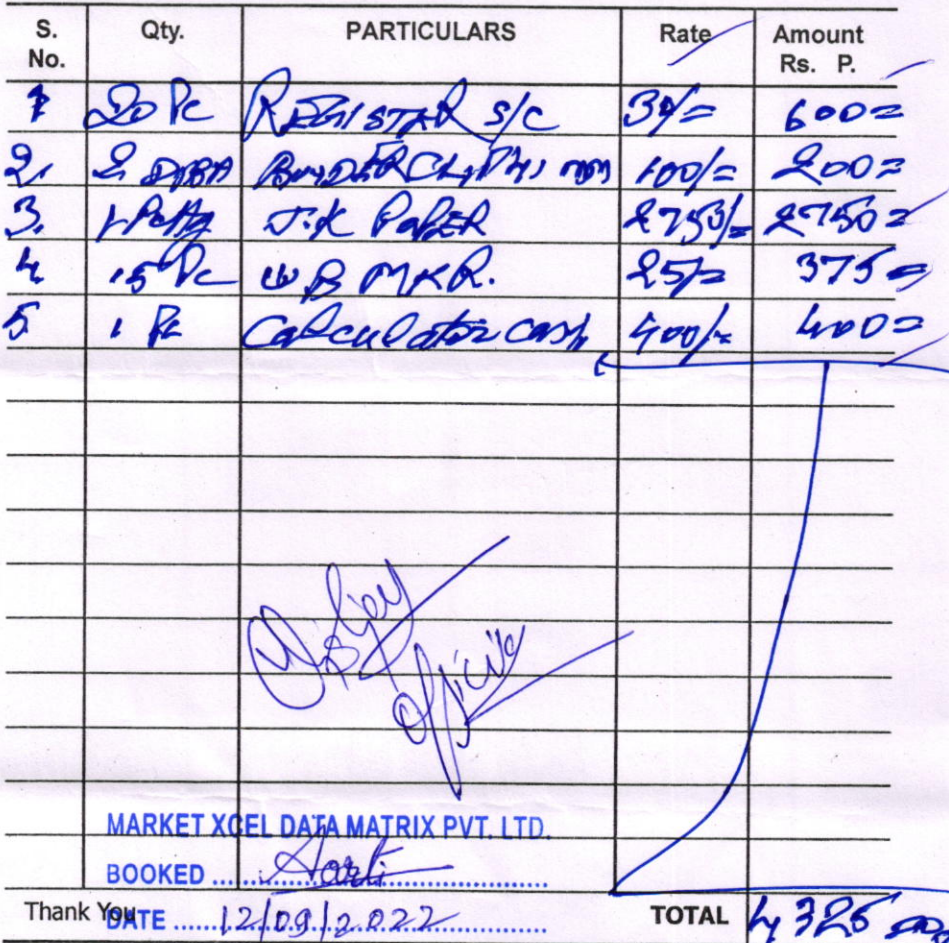 S. No. Qty. PARTICULARS Rate Amount Rs. P.
1 20 Pc REGISTER S/C 30/= 600=
2. 2 DIBBA BINDER CLIP mm 100/= 200=
3. 1 J.K PAPER 2750/= 2750=
4 15 Pc W B MKR. 25/= 375=
5 1 Pc Calculator cash 400/= 400=
MARKET XCEL DATA MATRIX PVT. LTD.
BOOKED Aarti
Thank You DATE 12/09/2022 TOTAL 4325